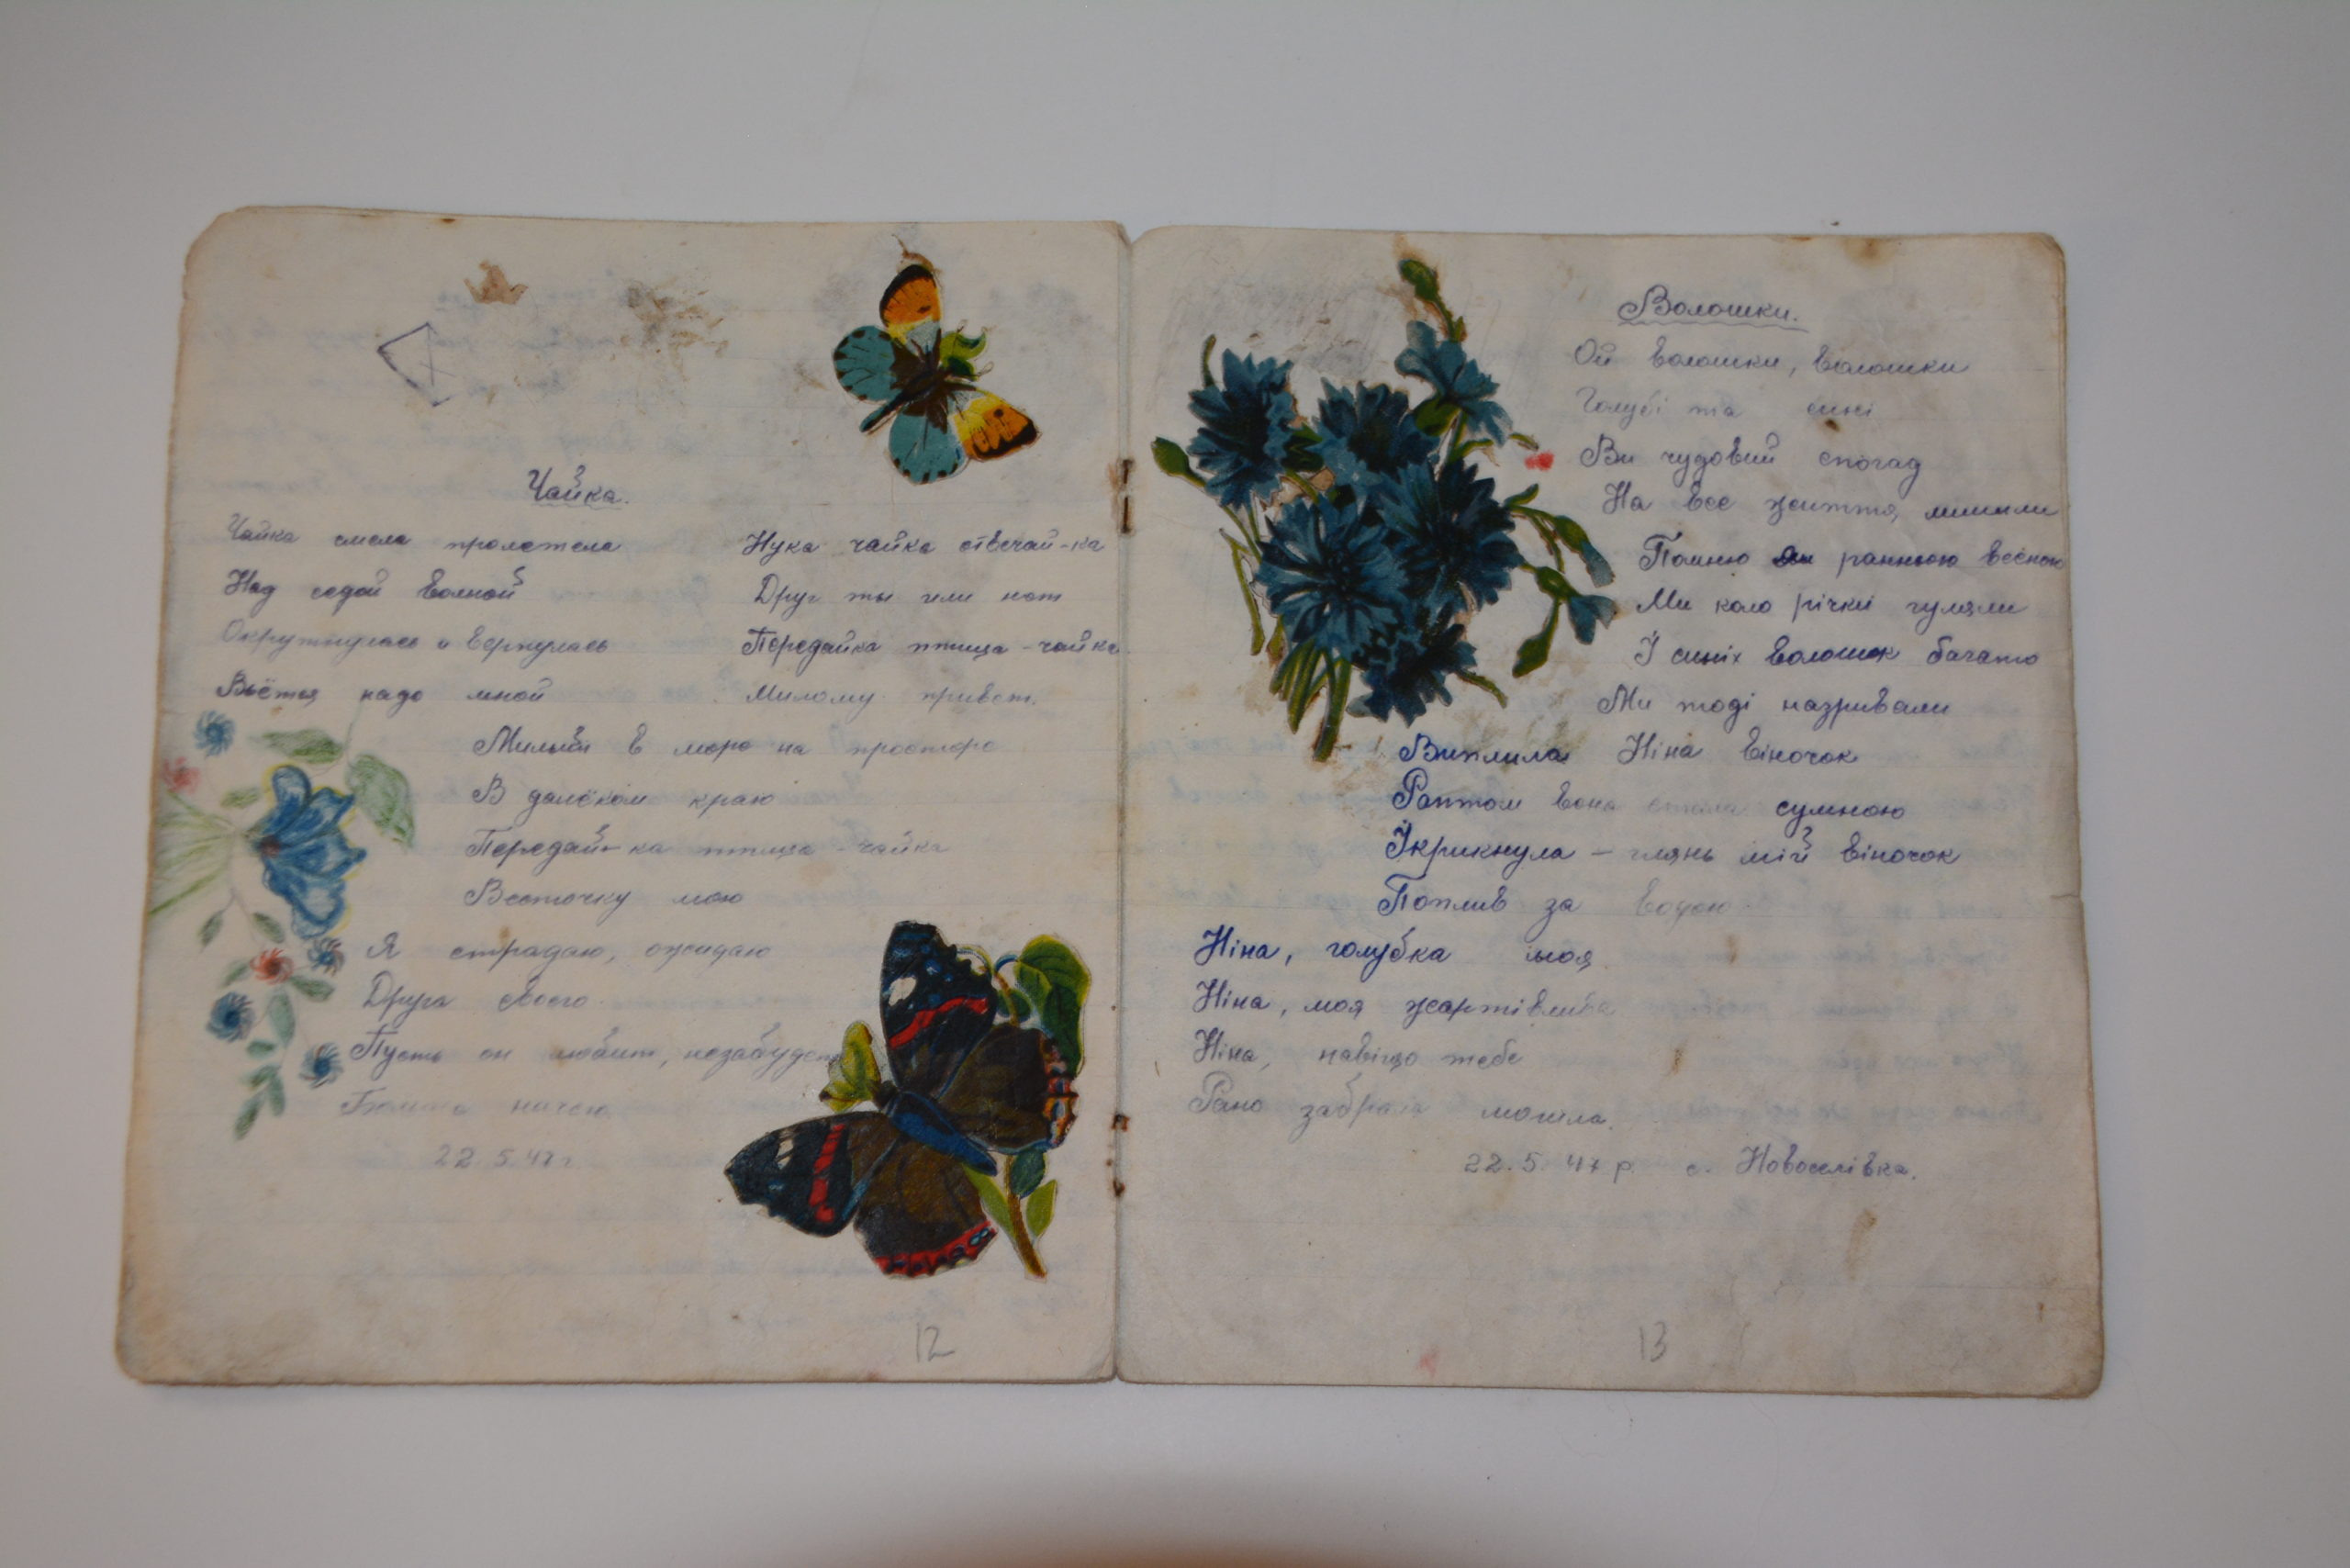 Чайка.
Чайка смела пролетела
Над седой волной
Окружнулась и вернулась
Вьётця надо мной
Нука чайка отвечай-ка
Друг ты или нет
Передайка птица-чайка
Милому привет.
Милый в море на просторе
В далёком краю
Передай-ка птица-чайка
Весточку мою
Я страдаю, ожидаю
Друга своего
Пусть он любит, незабудет
ничего
22.5.47 г.
12
Волошки.
Ой волошки, волошки
Голубі та сині
Ви чудовий спогад
На все життя, лишили
Помню ранньою весною
Ми коло річки гуляли
І синіх волошок багато
Ми тоді назривали
Виплила Ніна віночок
Раптом вона стала сумною
Ікрикнула – глянь мій віночок
Поплив за водою
Ніна, голубка моя
Ніна, моя жартівлива
Ніна, навіщо тебе
Рано забрала могила.
22.5.47 р. с. Новоселівка.
13